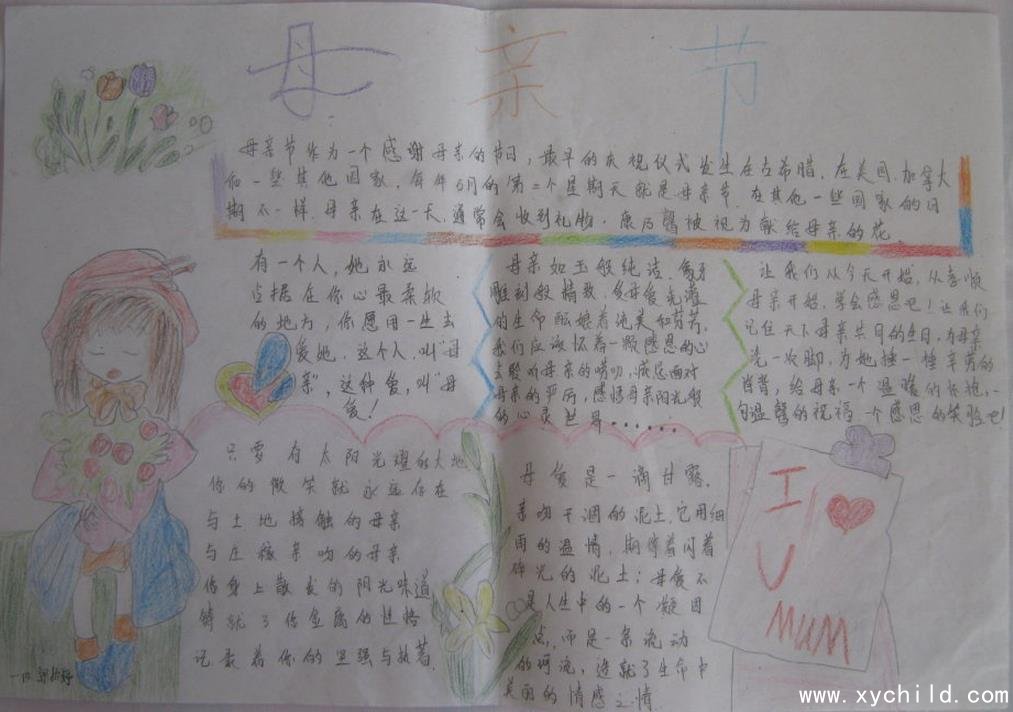 母亲节
母亲节作为一个感谢母亲的节日，最早的庆祝仪式发生在古希腊，在美国、加拿大
和一些其他国家，每年5月的第二个星期天就是母亲节，在其他一些国家的日
期不一样，母亲在这一天，通常会收到礼物，康乃馨被视为献给母亲的花。
有一个人，她永远
占据在你心最柔软
的地方，你愿用一生去
爱她，这个人，叫“母
亲”，这种爱，叫“母
爱！
母亲如玉般纯洁，
雕刻般精致，
的生命酝酿着纯美和芬芳，
我们应该怀着一颗感恩的心
去聆听母亲的唠叨，面对
母亲的严厉，感悟母亲阳光般
的心灵世界……
让我们从今天开始，从孝顺
母亲开始，学会感恩吧！让我们
记住天下母亲共同的生日，为母亲
洗一次脚，为她捶一捶辛劳的
肩背，给母亲一个温暖的怀抱，一
句温馨的祝福一个感恩的笑脸吧！
只要有太阳光耀的大地
你的微笑就永远存在
与土地接触的母亲
与庄稼亲吻的母亲
你身上散发的阳光味道
铸就了你金属的性格
记载着你的坚强与执著
母爱是一滴甘露，
亲吻干涸的泥土，它用细
雨的温情，期待着闪着
碎光的泥土；母爱不
是人生中的一个凝固
点，而是一条流动
的河流，造就了生命中
美丽的情感之情
I
U
MUM
www.xychild.com